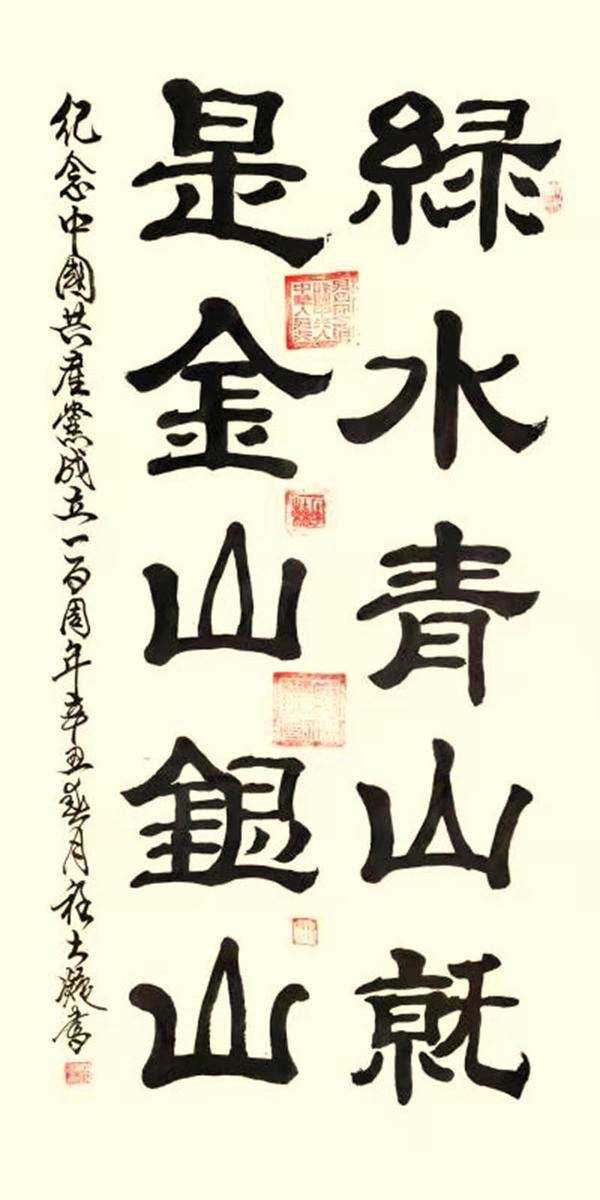 緑水青山就
是金山銀山
紀念中國共產黨成立一百周年辛丑春月書